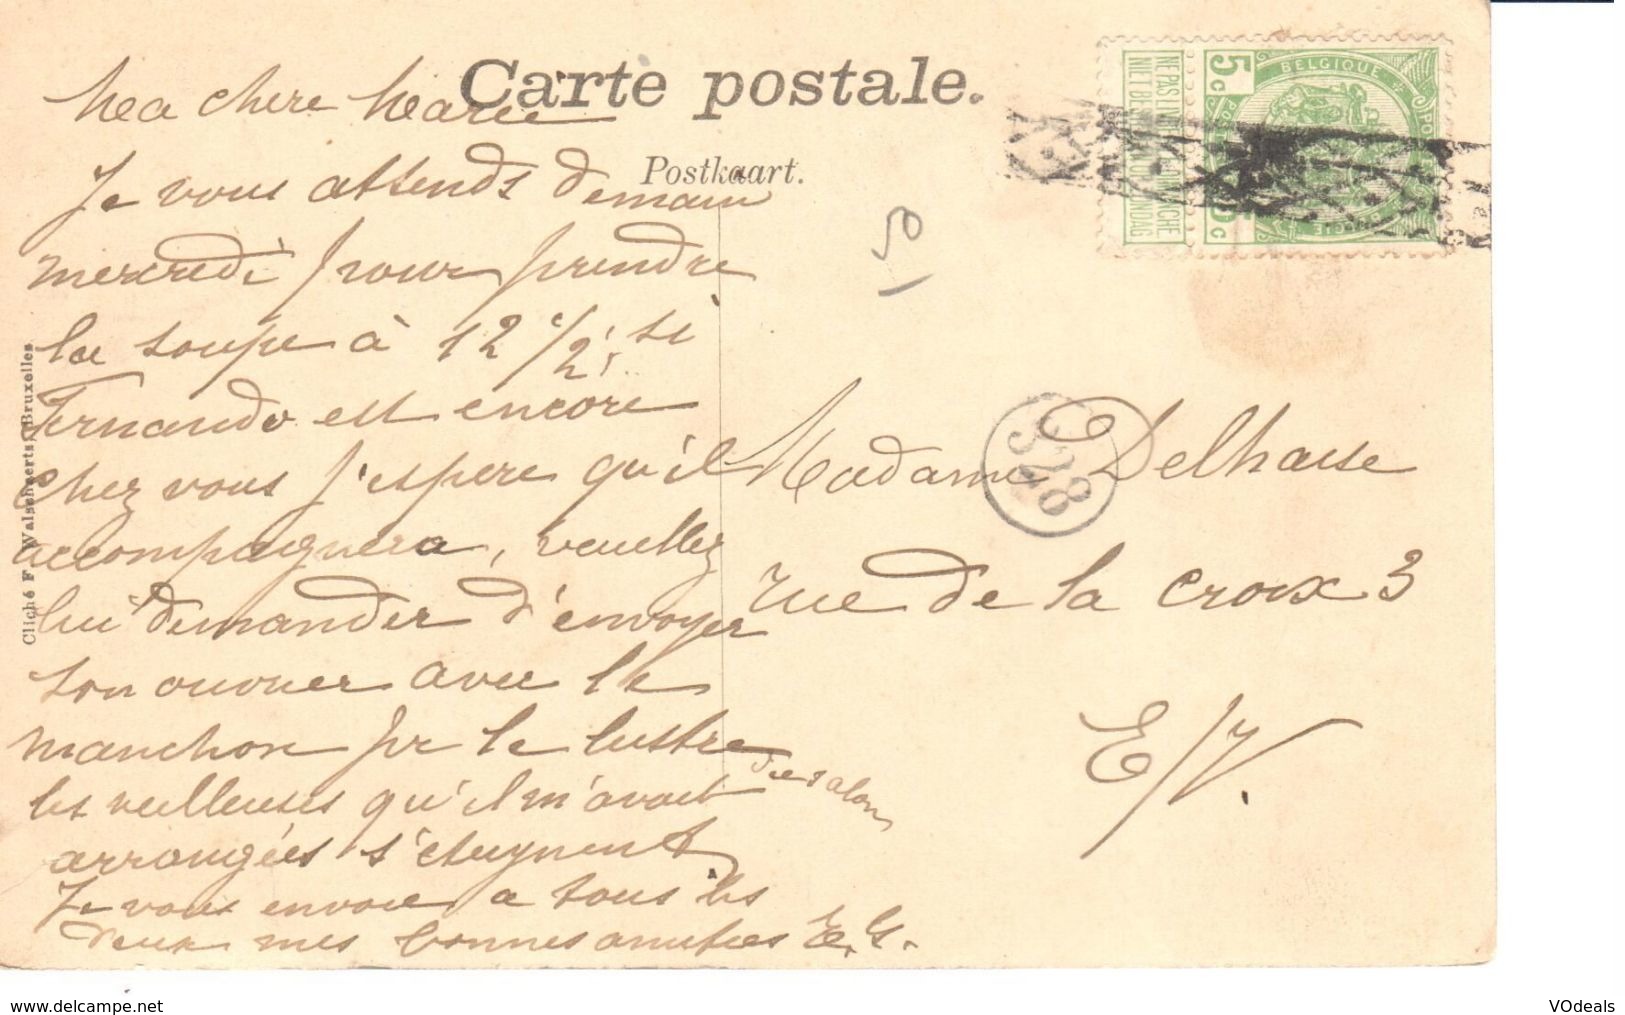 Carte postale.
Postkaart.
Ma chere Marie
Je vous attends demain
mercredi pour prendre
la soupe à 12 1/2, si
Fernando est encore
chez vous j'espere qu'il
accompagnera, veuillez
lui demander d'envoyer
son ouvrier avec le
manchon pr le lustre
du salon
les veilleuses qu'il m'avait
arrangées s'eteignent
Je vous envoie a tous les
deux mes bonnes amitiés E. G.
Madame Delhaise
rue de la croix 3
E/V.
50
328
5c BELGIQUE 5c
NE PAS LIVRER LE DIMANCHE
NIET BESTELLEN OP ZONDAG
Cliché F. Walschaerts, Bruxelles
www.delcampe.net
VOdeals